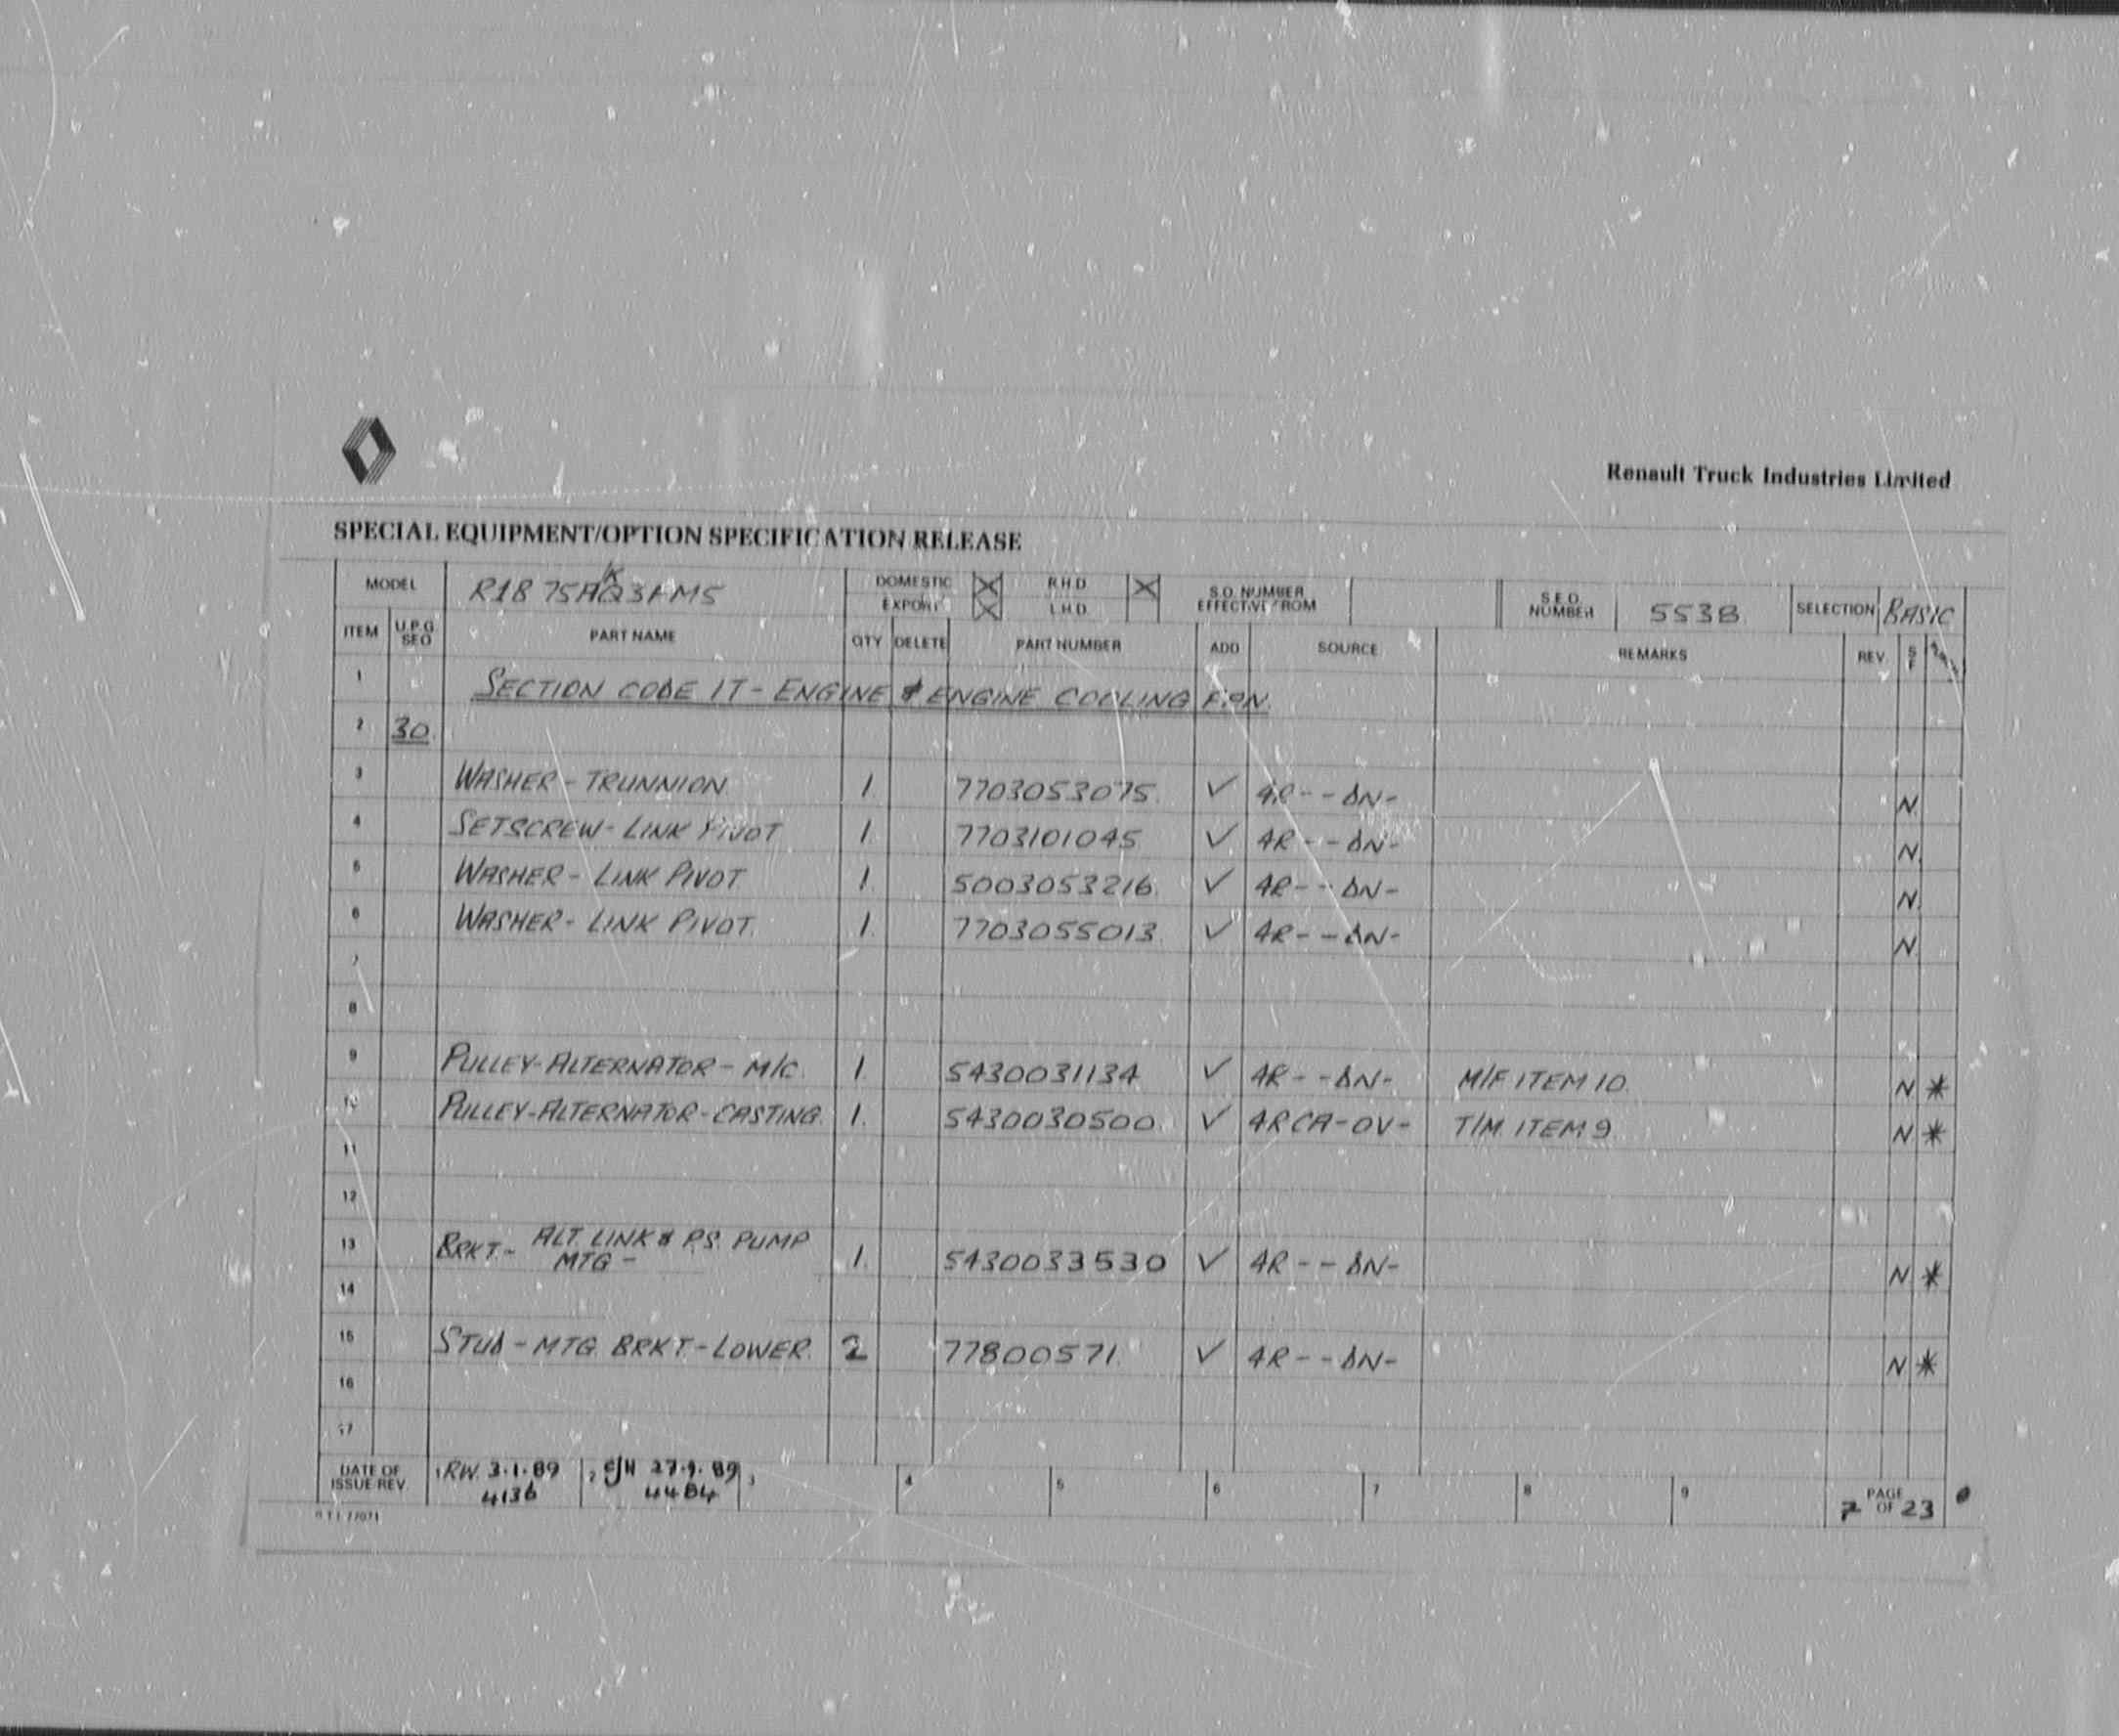 Renault Truck Industries Limited
SPECIAL EQUIPMENT/OPTION SPECIFICATION RELEASE
MODEL DOMESTIC X R.H.D X S.O. NUMBER EFFECTIVE FROM S.E.O. NUMBER 553B SELECTION BASIC
EXPORT X L.H.D
ITEM U.P.G SEQ PART NAME QTY DELETE PART NUMBER ADD SOURCE REMARKS REV. S F
1 SECTION CODE 1T - ENGINE & ENGINE COOLING FAN.
2 30
3 WASHER - TRUNNION 1. 7703053075. ✓ 4R - - DN - N
4 SETSCREW - LINK PIVOT 1. 7703101045 ✓ 4R - - DN - N
5 WASHER - LINK PIVOT 1. 5003053216. ✓ 4R - - DN - N
6 WASHER - LINK PIVOT. 1. 7703055013. ✓ 4R - - DN - N
7
8
9 PULLEY-ALTERNATOR - M/C. 1. 5430031134 ✓ 4R - - DN - M/F ITEM 10. N *
10 PULLEY-ALTERNATOR-CASTING. 1. 5430030500. ✓ 4RCA-OV- T/M ITEM 9 N *
11
12
13 BRKT.- ALT. LINK & P.S. PUMP
MTG - 1. 5430033530 ✓ 4R - - DN - N *
14
15 STUD - MTG BRKT. - LOWER. 2 77800571. ✓ 4R - - DN - N *
16
17
DATE OF ISSUE/REV. 1 RW. 3.1.89 2 27.9.89 3 4 5 6 7 8 9 PAGE
4136 4484 7 OF 23
R.T.I. 77071